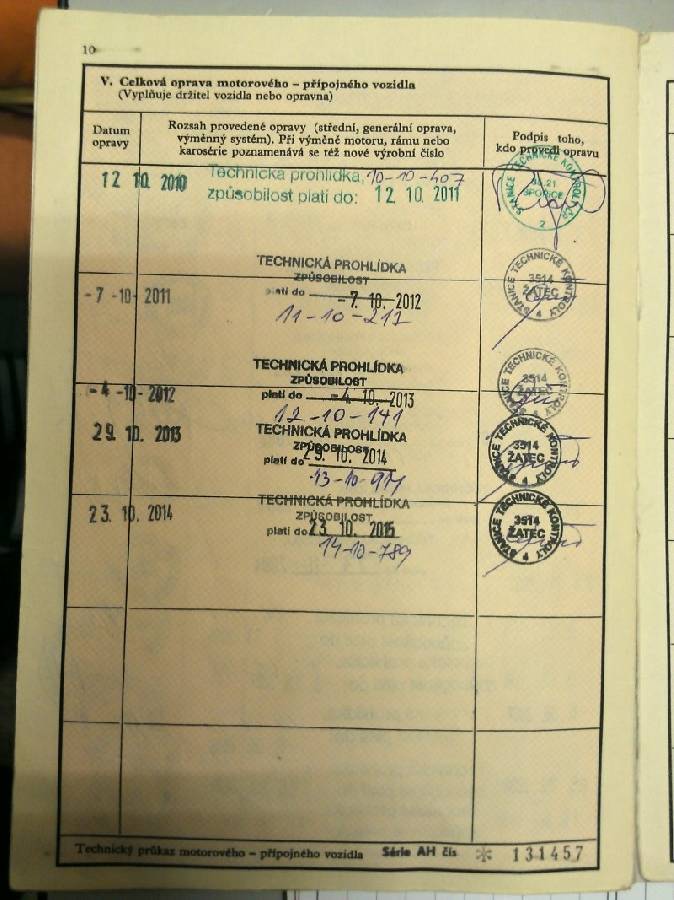 10
V. Celková oprava motorového – přípojného vozidla
(Vyplňuje držitel vozidla nebo opravna)
Datum opravy
Rozsah provedené opravy (střední, generální oprava,
výměnný systém). Při výměně motoru, rámu nebo
karosérie poznamenává se též nové výrobní číslo
Podpis toho,
kdo provedl opravu
12 10. 2010
Technická prohlídka, 10-10-407
způsobilost platí do: 12 10. 2011
STANICE TECHNICKÉ KONTROLY
SPOŘICE
2
TECHNICKÁ PROHLÍDKA
ZPŮSOBILOST
-7 -10- 2011
platí do -7. 10. 2012
11-10-217
STANICE TECHNICKÉ KONTROLY
3514
ŽATEC
4
TECHNICKÁ PROHLÍDKA
ZPŮSOBILOST
-4 -10- 2012
platí do -4. 10. 2013
12-10-141
STANICE TECHNICKÉ KONTROLY
3514
ŽATEC
4
29. 10. 2013
TECHNICKÁ PROHLÍDKA
ZPŮSOBILOST
platí do 29. 10. 2014
13-10-971
STANICE TECHNICKÉ KONTROLY
3514
ŽATEC
4
23. 10. 2014
TECHNICKÁ PROHLÍDKA
ZPŮSOBILOST
platí do 23. 10. 2015
14-10-789
STANICE TECHNICKÉ KONTROLY
3514
ŽATEC
4
Technický průkaz motorového – přípojného vozidla Série AH čís * 131457